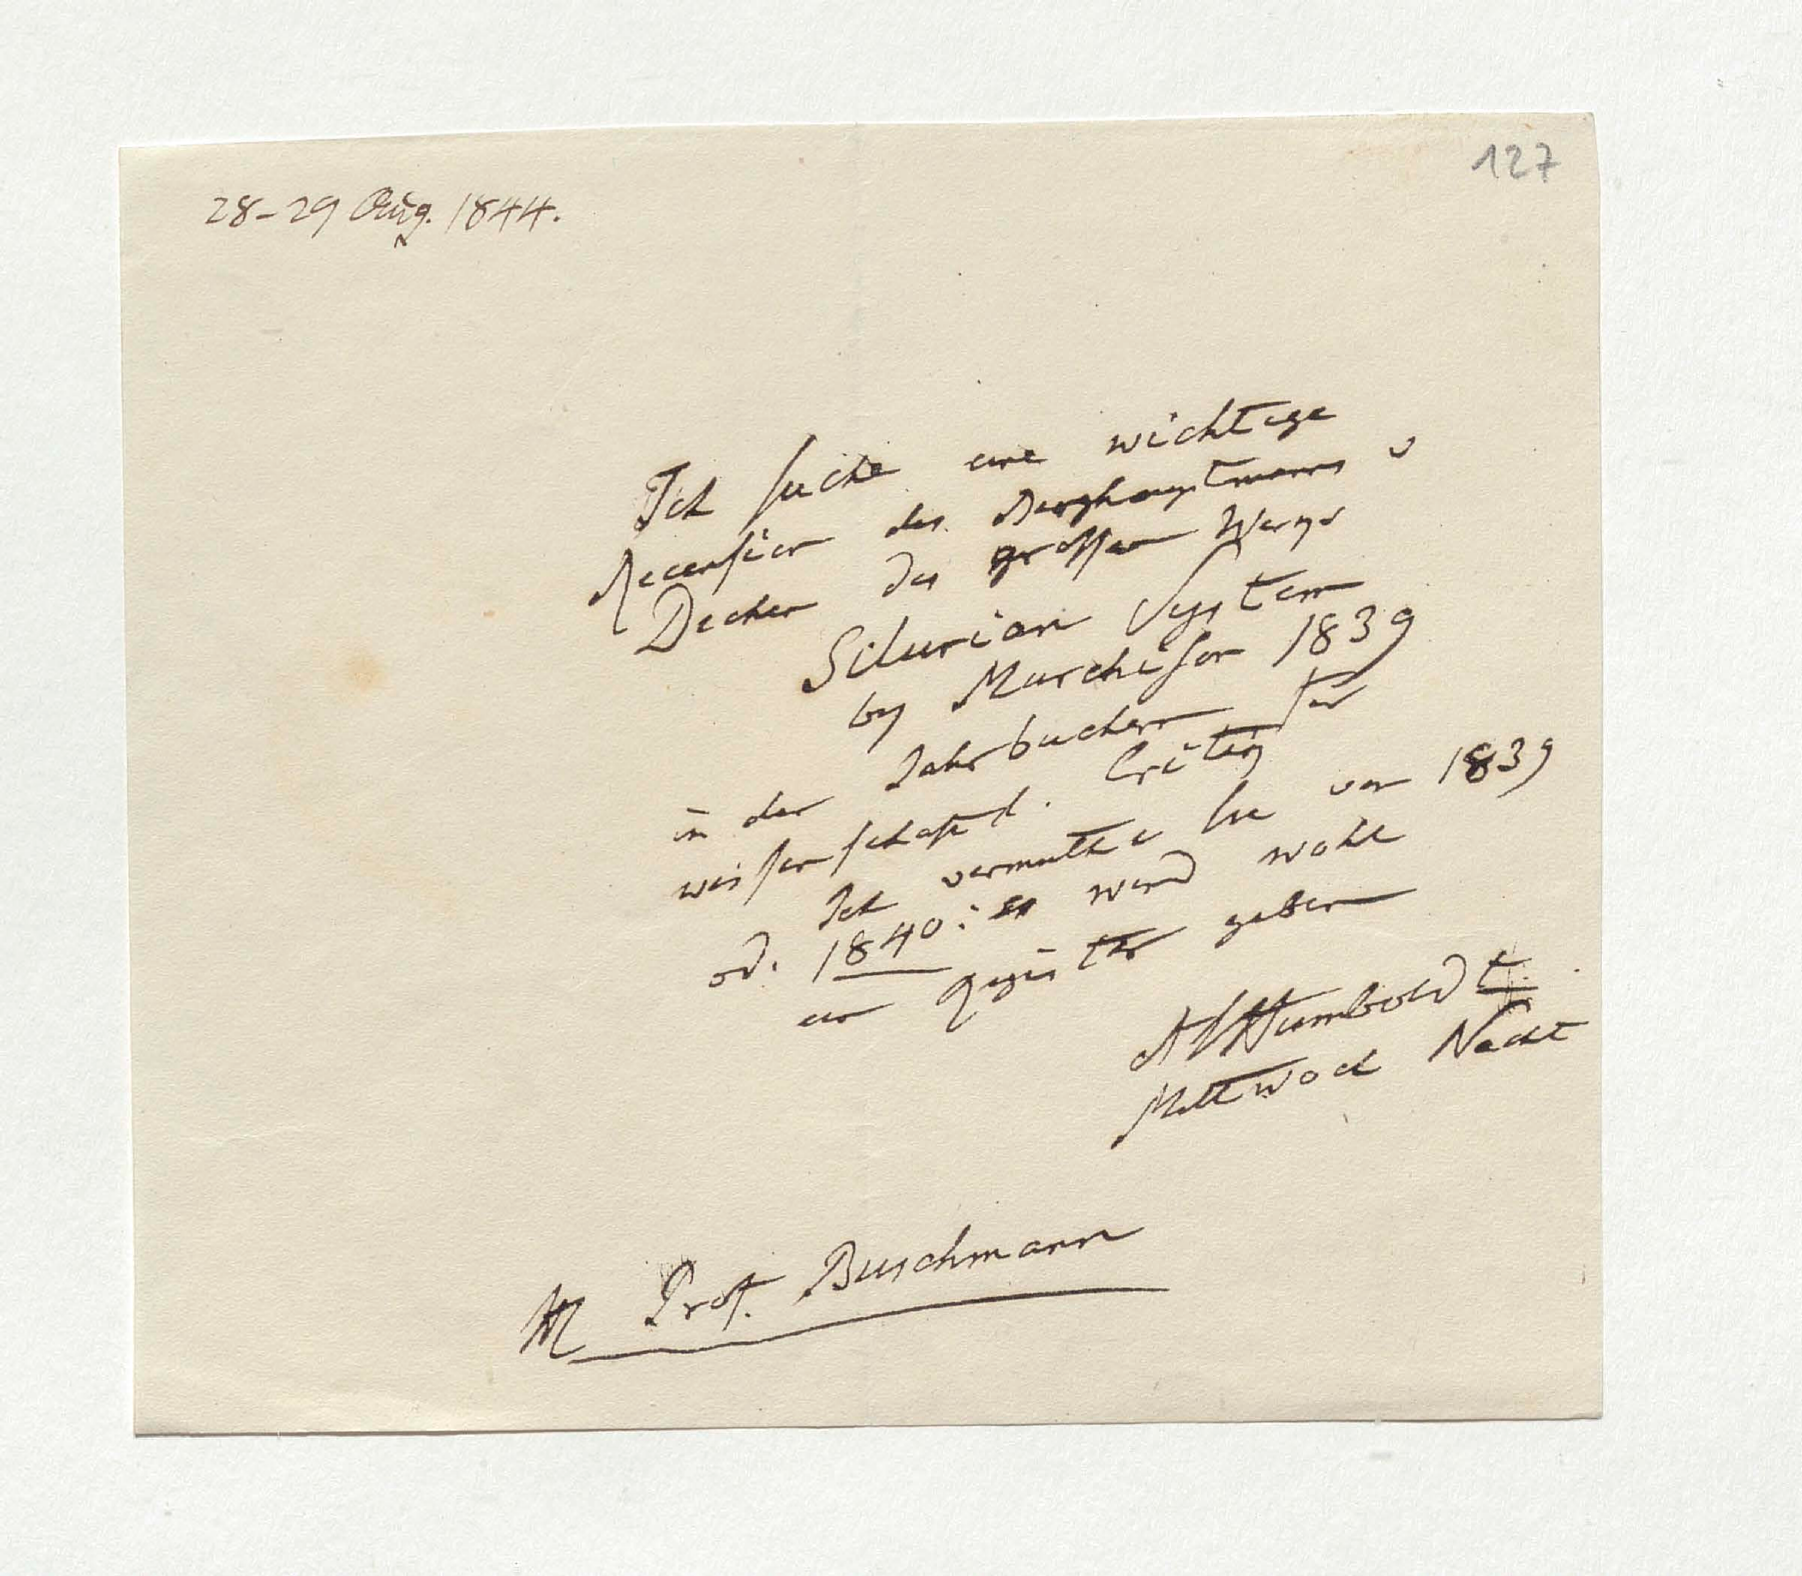 127
28–29 Aug. 1844.
Ich suche eine wichtige
Recension des Berghauptmanns v
Dechen des grossen Werks
Silurian System
by Murchison 1839
in den Jahrbüchern für
wissenschaftl. Critik
Ich vermuthe sie von 1839
od. 1840: es wird wohl
ein Register geben
AVHumboldt
Mittwoch Nacht
H Prof. Buschmann